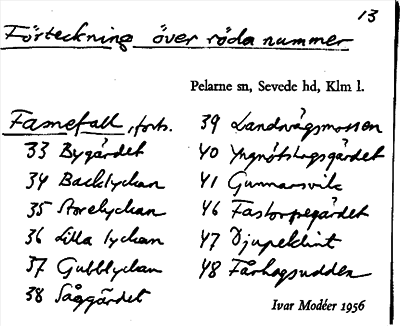 13
Förteckning över röda nummer
Pelarne sn, Sevede hd, Klm l.
Famefall, forts.
33 Bygärdet
34 Backlyckan
35 Storelyckan
36 Lilla lyckan
37 Gubblyckan
38 Såggärdet
39 Landsvägsmossen
40 Yxnötshagsgärdet
41 Gunnarsvik
46 Fastorpegärdet
47 Djupeklint
48 Fårhagsudden
Ivar Modéer 1956